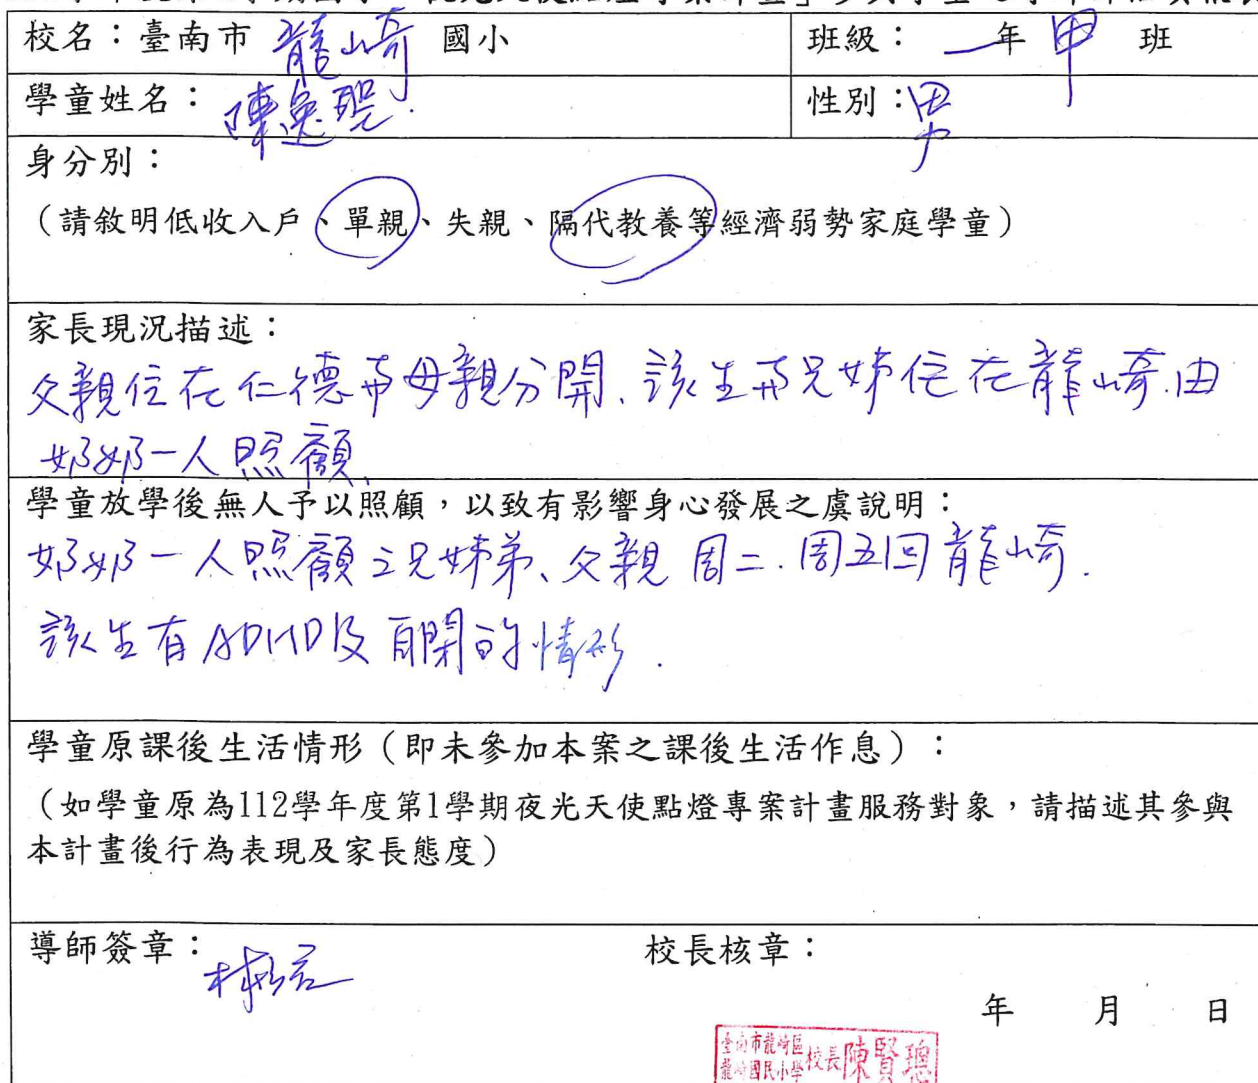 校名：臺南市 龍崎 國小
班級： 一年 甲 班
學童姓名： 陳逸
性別：男
身分別：
（請敘明低收入戶、單親、失親、隔代教養等經濟弱勢家庭學童）
家長現況描述：
父親住在仁德與母親分開、該生與兄姊住在龍崎.由
奶奶一人照顧、
學童放學後無人予以照顧，以致有影響身心發展之虞說明：
奶奶一人照顧三兄姊弟、父親 周二.周五回龍崎.
該生有ADHD及自閉的情形.
學童原課後生活情形（即未參加本案之課後生活作息）：
（如學童原為112學年度第1學期夜光天使點燈專案計畫服務對象，請描述其參與
本計畫後行為表現及家長態度）
導師簽章：
校長核章：
年 月 日
臺南市龍崎區
龍崎國民小學
校長陳賢聰